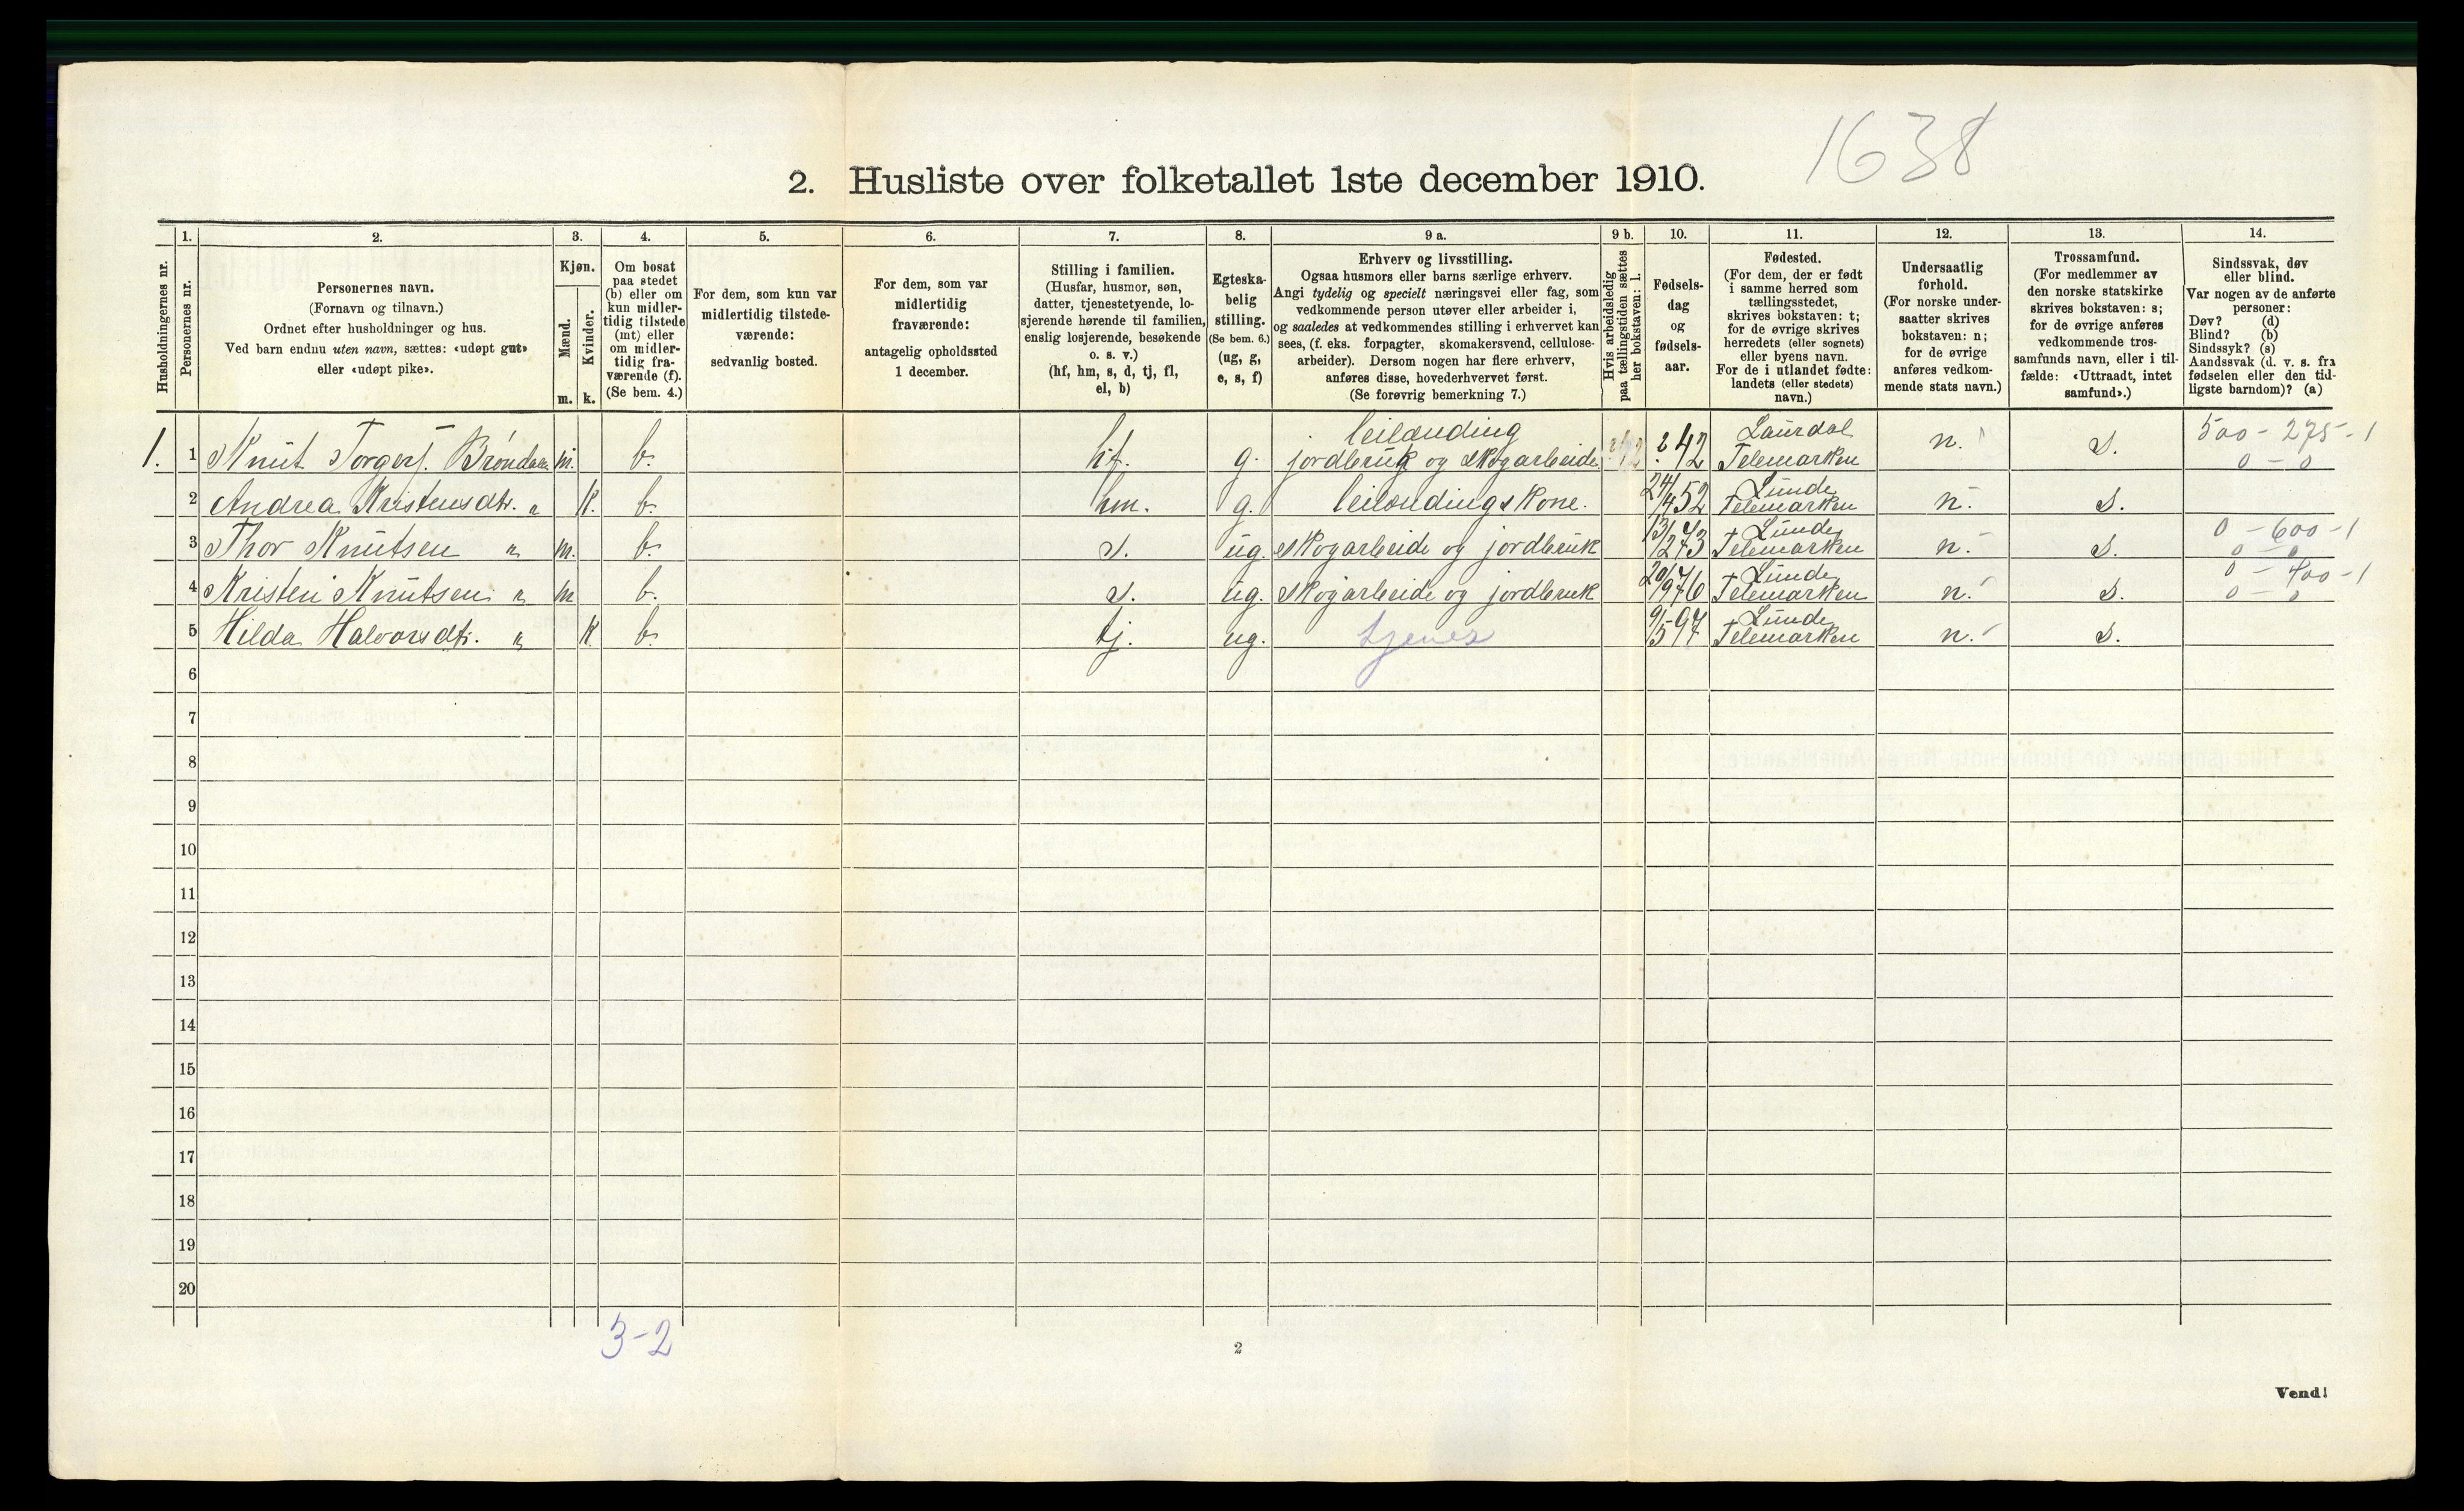 1638
2. Husliste over folketallet 1ste december 1910.
Husholdningernes nr.
1.
Personernes nr.
2.
Personernes navn.
(Fornavn og tilnavn.)
Ordnet efter husholdninger og hus.
Ved barn endnu uten navn, sættes: «udøpt gut»
eller «udøpt pike».
3.
Kjøn.
Mænd.
Kvinder.
m.
k.
4.
Om bosat
paa stedet
(b) eller om
kun midler-
tidig tilstede
(mt) eller
om midler-
tidig fra-
værende (f).
(Se bem. 4.)
5.
For dem, som kun var
midlertidig tilstede-
værende:
sedvanlig bosted.
6.
For dem, som var
midlertidig
fraværende:
antagelig opholdssted
1 december.
7.
Stilling i familien.
(Husfar, husmor, søn,
datter, tjenestetyende, lo-
sjerende hørende til familien,
enslig losjerende, besøkende
o. s. v.)
(hf, hm, s, d, tj, fl,
el, b)
8.
Egteska-
belig
stilling.
(Se bem. 6.)
(ug, g,
e, s, f)
9 a.
Erhverv og livsstilling.
Ogsaa husmors eller barns særlige erhverv.
Angi tydelig og specielt næringsvei eller fag, som
vedkommende person utøver eller arbeider i,
og saaledes at vedkommendes stilling i erhvervet kan
sees, (f. eks. forpagter, skomakersvend, cellulose-
arbeider). Dersom nogen har flere erhverv,
anføres disse, hovederhvervet først.
(Se forøvrig bemerkning 7.)
9 b.
Hvis arbeidsledig
paa tællingstiden sættes
her bokstaven: l.
10.
Fødsels-
dag
og
fødsels-
aar.
11.
Fødested.
(For dem, der er født
i samme herred som
tællingsstedet,
skrives bokstaven: t;
for de øvrige skrives
herredets (eller sognets)
eller byens navn.
For de i utlandet fødte:
landets (eller stedets)
navn.)
12.
Undersaatlig
forhold.
(For norske under-
saatter skrives
bokstaven: n;
for de øvrige
anføres vedkom-
mende stats navn.)
13.
Trossamfund.
(For medlemmer av
den norske statskirke
skrives bokstaven: s;
for de øvrige anføres
vedkommende tros-
samfunds navn, eller i til-
fælde: «Uttraadt, intet
samfund».)
14.
Sindssvak, døv
eller blind.
Var nogen av de anførte
personer:
Døv? (d)
Blind? (b)
Sindssyk? (s)
Aandssvak (d. v. s. fra
fødselen eller den tid-
ligste barndom)? (a)
leilending Laurdal 500 - 275 - 1
1. 1 Knut Torgersf. Brøndalen m. b. hf. g. jordbruk og skogarbeide ? 42 Telemarken n. s. 0 - 0
Lunde
2 Andrea Kristensdtr. " k. b. hm. g. leilendingskone. 24/4 52 Telemarken n. s.
Lunde 0 - 600 - 1
3 Thor Knutsen " m. b. s. ug. skogarbeide og jordbruk 13/2 73 Telemarken n. s. 0 - 0
Lunde 0 - 400 - 1
4 Kristen Knutsen " m b. s. ug. skogarbeide og jordbruk 20/9 76 Telemarken n. s. 0 - 0
Lunde
5 Hilda Halvorsdtr. " k. b. tj. ug. 9/5 97 Telemarken n. s.
6
7
8
9
10
11
12
13
14
15
16
17
18
19
20
3-2
2
Vend!